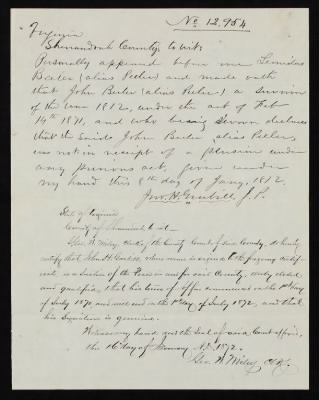 No 12,954
Virginia
Shenandoah County, to wit:
Personally appeared before me
Beeler (alias Peeler) and made oath
that John Beeler (alias Peeler) a survivor
of the war 1812, under the act of Feb
14th 1871, and who being sworn declares
that the said John Beeler alias Peeler,
was not in receipt of a pension under
any previous act, given under
my hand this 8th day of Jany, 1872.
Jno. H. Grabill, J. P.
State of Virginia
County of Shenandoah to wit:
Geo. W. Miley, clerk of the County Court of said County, do hereby
certify that John H. Grabill, whose name is signed to the foregoing certifi-
cate, is a Justice of the Peace in and for said County, duly elected
and qualified, that his term of office commenced on the 1st day
of July 1870, and will end on the 1st day of July 1872, and that
his signature is genuine.
Witness my hand and the Seal of said Court affixed,
this 16 day of January A.D. 1872.
Geo. W. Miley, Clk.